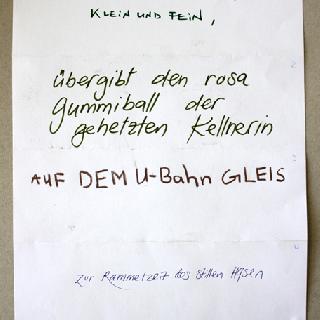 KLEIN UND FEIN,
übergibt den rosa
Gummiball der
gehetzten Kellnerin
AUF DEM U-Bahn GLEIS
zur Rammelzeit des stillen